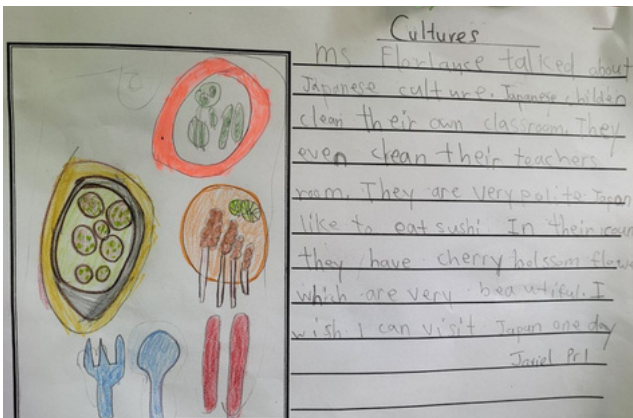 Cultures
Ms Florlanse talked about
Japanese culture. Japanese children
clean their own classroom. They
even clean their teachers
room. They are very polite. Japan
like to eat sushi In their coun
they have cherry bolssom flowe
which are very beautiful. I
wish I can visit Japan one day
Jasiel Pr1